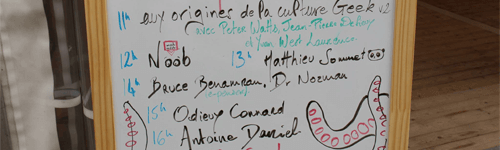 11h aux origines de la culture Geek v2
avec Peter Watts, Jean-Pierre Dehay
d'Yvan West Laurence
12h Noob 13h Matthieu Sommet
14h Bruce Benamran, Dr Nozman
(e-penser)
15h Odieux Connard
16h Antoine Daniel